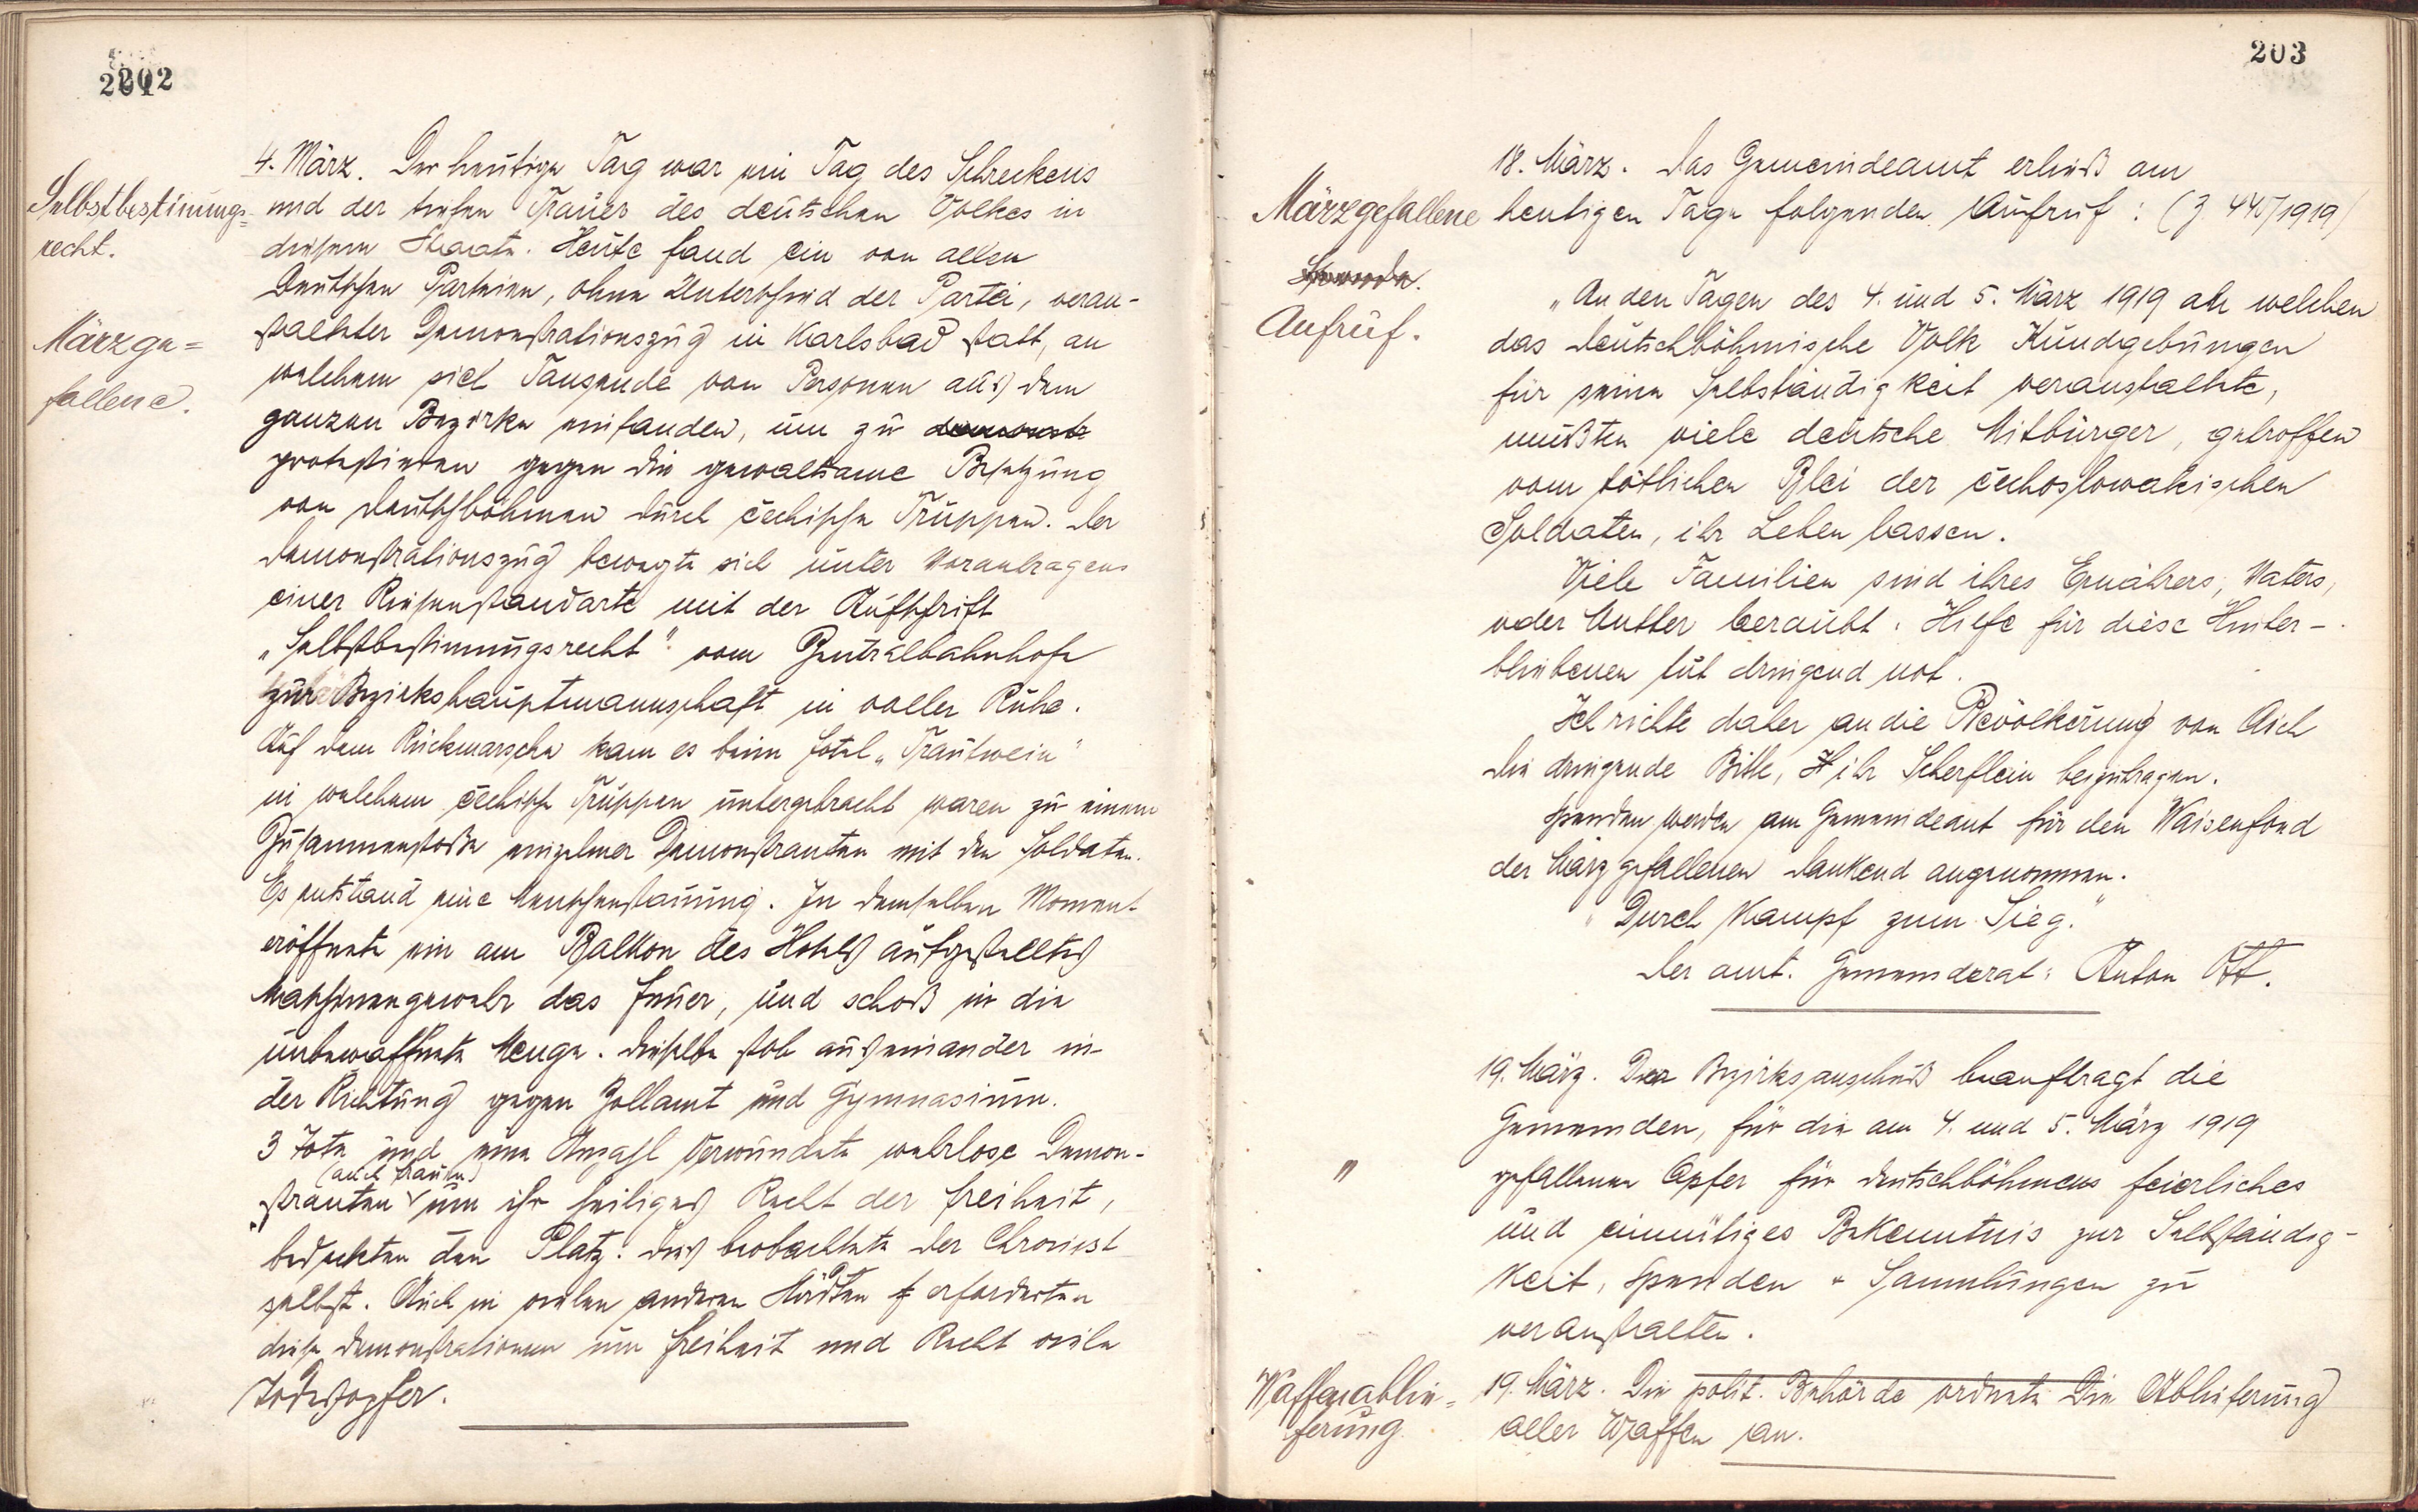 202
4. März. Der heutige Tag war ein Tag des Schreckens
Selbstbestimungs=
recht.
und der tiefen Trauer des deutschen Volkes in
diesem Staate. Heute fand ein von allen
deutschen Parteien, ohne Unterschied der Partei, veran-
Märzge=
fallene.
stalteter Demonstrationszug in Karlsbad statt, an
welchem sich Tausende von Personen aus dem
ganzen Bezirke einfanden, um zu
protestieren gegen die gewaltsame Besetzung
von Deutschböhmen durch čechische Truppen. Der
Demonstrationszug bewegte sich unter Vorantragens
einer Riesenstandarte mit der Aufschrift
„Selbstbestimmungsrecht" vom Zentralbahnhofe
zur Bezirkshauptmannschaft in voller Ruhe.
Auf dem Rückmarsche kam es beim Hotel „Trautwein"
in welchem čechische Truppen untergebracht waren zu einem
Zusammenstoße einzelner Demonstranten mit den Soldaten.
Es entstand eine Menschenstauung. In demselben Moment
eröffnete ein am Balkon des Hotels aufgestelltes
Maschinengewehr das Feuer, und schoß in die
unbewaffnete Menge. Dieselbe stob auseinander in
der Richtung gegen Zollamt und Gymnasium.
3 Tote und eine Anzahl Verwundete wehrlose Demon-
(auch Frauen)
stranten um ihr heiliges Recht der Freiheit,
bedeckten den Platz. Dies beobachtete der Chronist
selbst. Auch in vielen anderen Städten erforderten
diese Demonstrationen um Freiheit und Recht viele
Todesopfer.
203
18. März. Das Gemeindeamt erließ am
Märzgefallene
heutigen Tage folgenden Aufruf: (Z. 445/1919)
Spende.
Aufruf.
„An den Tagen des 4. und 5. März 1919 an welchen
das deutschböhmische Volk Kundgebungen
für seine Selbständigkeit veranstaltete,
mußten viele deutsche Mitbürger, getroffen
vom tötlichen Blei der čechoslowakischen
Soldaten, ihr Leben lassen.
Viele Familien sind ihres Ernährers, Vaters,
oder Mutter beraubt. Hilfe für diese Hinter-
bliebenen tut dringend not.
Ich richte daher an die Bevölkerung von Aich
die dringende Bitte, ihr Scherflein beizutragen.
Spenden werden am Gemeindeamt für den Waisenfond
der Märzgefallenen dankend angenommen.
„Durch Kampf zum Sieg."
Der amt. Gemeinderat: Anton Ott.
19. März. Der Bezirksausschuß beauftragt die
Gemeinden, für die am 4. und 5. März 1919
"
gefallenen Opfer für Deutschböhmens feierliches
und einmütiges Bekenntnis zur Selbständig-
keit, Spenden + Sammlungen zu
veranstalten.
Waffenablie=
ferung.
19. März. Die polit. Behörde ordnete die Ablieferung
aller Waffen an.